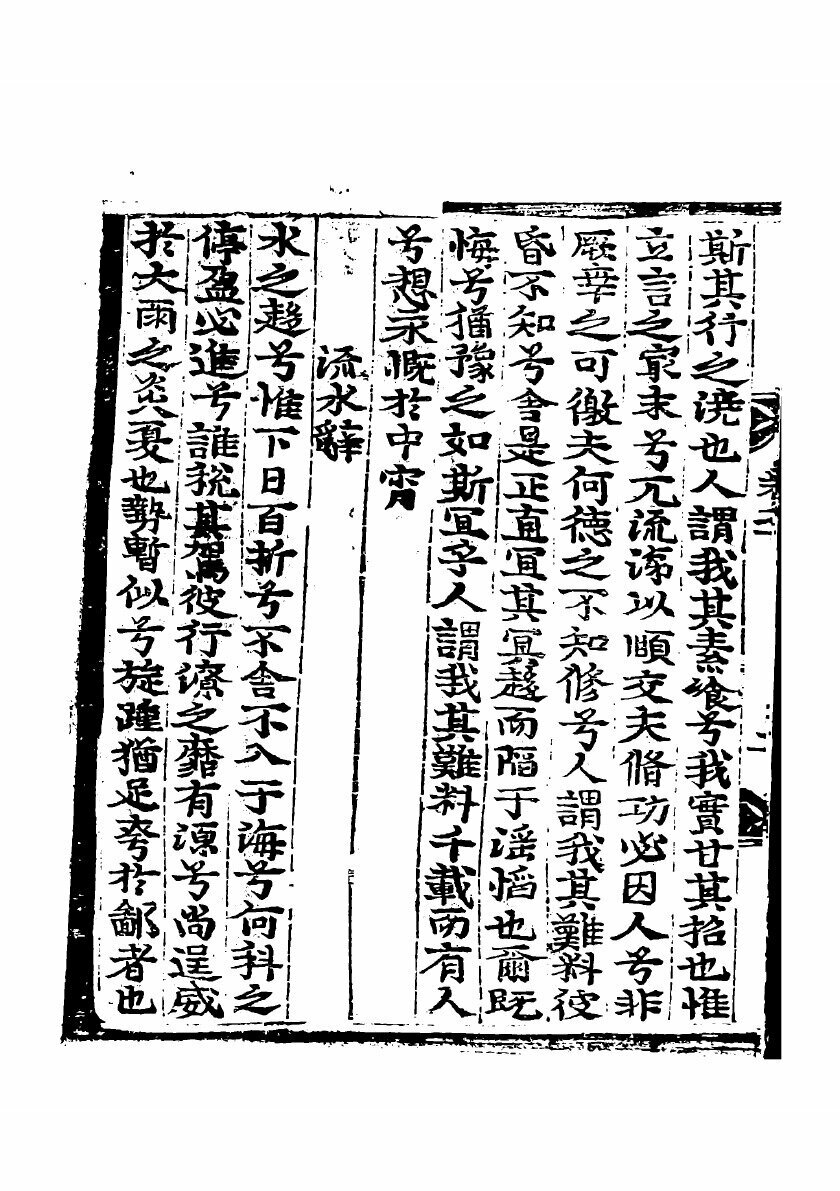 斯其行之澆也人謂我其素飱兮我實甘其招也惟
立言之冣末兮兀流涕以頥交夫脩功必因人兮非
厥幸之可徼夫何德之不知修兮人謂我其難料彼
昏不知兮舍是正直冝其冝趍而陷于滛慆也爾旣
悔兮猶豫之如斯冝乎人謂我其難料千載而有人
兮想永慨扵中宵
流水辭
水之趍兮惟下日百折兮不舍不入于海兮何科之
停盈必進兮誰稅其駕彼行潦之靡有源兮尚逞威
扵大雨之炎夏也勢暫似兮旋踵猶足夸扵鄙者也
卷二